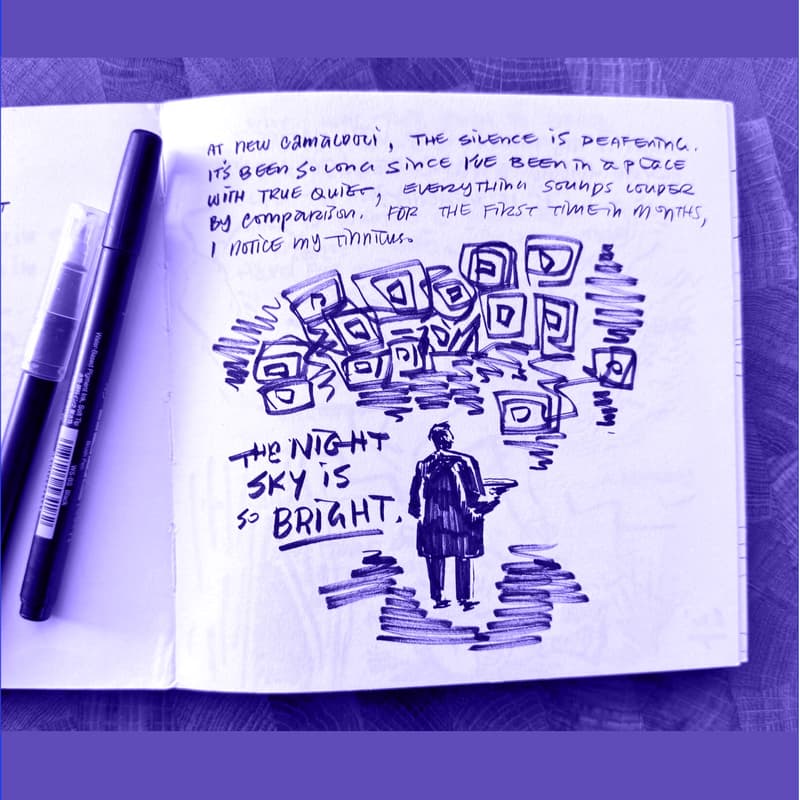 AT NEW CAMALDOLI, THE SILENCE IS DEAFENING.
IT'S BEEN SO LONG SINCE I'VE BEEN IN A PLACE
WITH TRUE QUIET, EVERYTHING SOUNDS LOUDER
BY COMPARISON. FOR THE FIRST TIME IN MONTHS,
I NOTICE MY TINNITUS.
THE NIGHT
SKY IS
SO BRIGHT.